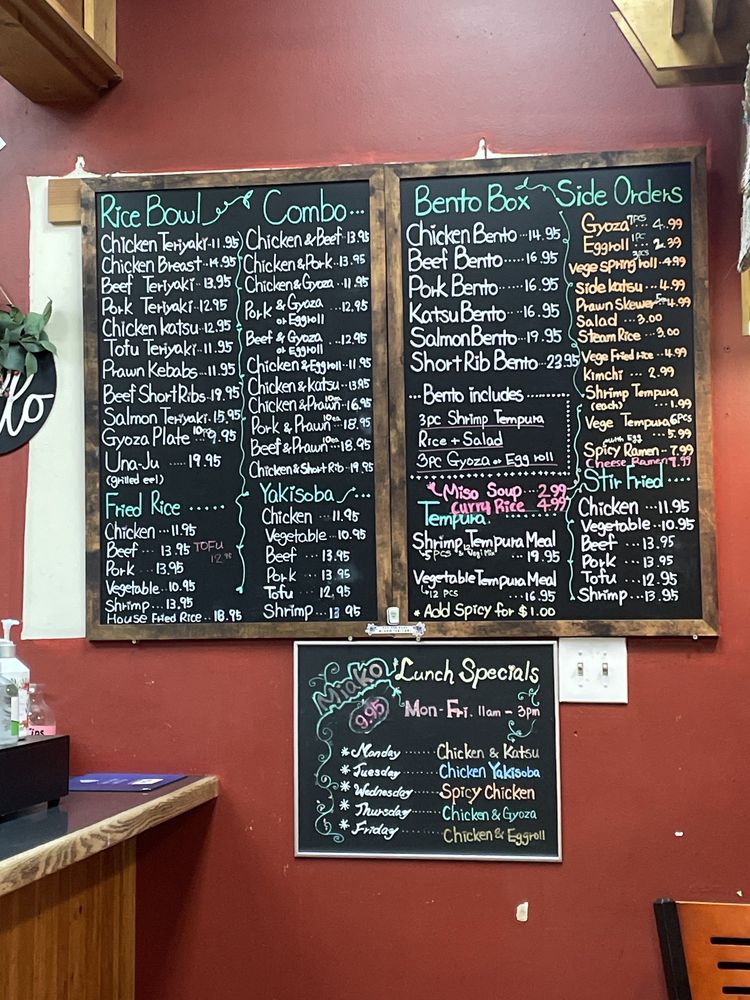 Rice Bowl
Chicken Teriyaki . 11.95
Chicken Breast .. 14.95
Beef Teriyaki . 13.95
Pork Teriyaki . 12.95
Chicken katsu .. 12.95
Tofu Teriyaki .. 11.95
Prawn Kebabs ... 11.95
Beef Short Ribs . 19.95
Salmon Teriyaki . 15.95
Gyoza Plate 10pc 9.95
Una-Ju ..... 19.95
(grilled eel)
Fried Rice .....
Chicken ... 11.95
Beef .. 13.95 TOFU
12.95
Pork .. 13.95
Vegetable .. 10.95
Shrimp ... 13.95
House Fried Rice .. 18.95
Combo ...
Chicken & Beef . 13.95
Chicken & Pork .. 13.95
Chicken & Gyoza .. 11.95
Pork & Gyoza ... 12.95
or Eggroll
Beef & Gyoza ... 12.95
or Eggroll
Chicken & Eggroll .. 11.95
Chicken & Katsu .. 13.95
Chicken & Prawn . 16.95
Pork & Prawn .. 15.95
Beef & Prawn .. 18.95
Chicken & Short Rib . 19.95
Yakisoba
Chicken ... 11.95
Vegetable .. 10.95
Beef ... 13.95
Pork ... 13.95
Tofu ... 12.95
Shrimp ... 13.95
Bento Box
Chicken Bento ... 14.95
Beef Bento ..... 16.95
Pork Bento ..... 16.95
Katsu Bento .... 16.95
Salmon Bento .. 19.95
Short Rib Bento .. 23.95
... Bento includes
3pc Shrimp Tempura
Rice + Salad
3pc Gyoza or Egg roll
Miso Soup .. 2.99
Curry Rice 4.99
Tempura.
Shrimp Tempura Meal
... 19.95
Vegetable Tempura Meal
12 PCS ... 16.95
* Add Spicy for $1.00
Side Orders
Gyoza 7PCS ... 4.99
Eggroll 1PC ... 2.39
Vege spring roll . 4.99
Side katsu ... 4.99
Prawn Skewer 4.99
Salad ... 3.00
Steam Rice ... 3.00
Vege Fried rice .. 4.99
Kimchi ... 2.99
Shrimp Tempura
(each) ... 1.99
Vege Tempura 6PCS
... 5.99
with Egg
Spicy Ramen .. 7.99
Cheese Ramen 7.99
Stir Fried ....
Chicken ... 11.95
Vegetable .. 10.95
Beef ... 13.95
Pork ... 13.95
Tofu ... 12.95
Shrimp ... 13.95
Miako
9.95
Lunch Specials
Mon - Fri. 11am - 3pm
* Monday ...... Chicken & Katsu
* Tuesday ...... Chicken Yakisoba
* Wednesday ...... Spicy Chicken
* Thursday ...... Chicken & Gyoza
* Friday ...... Chicken & Eggroll